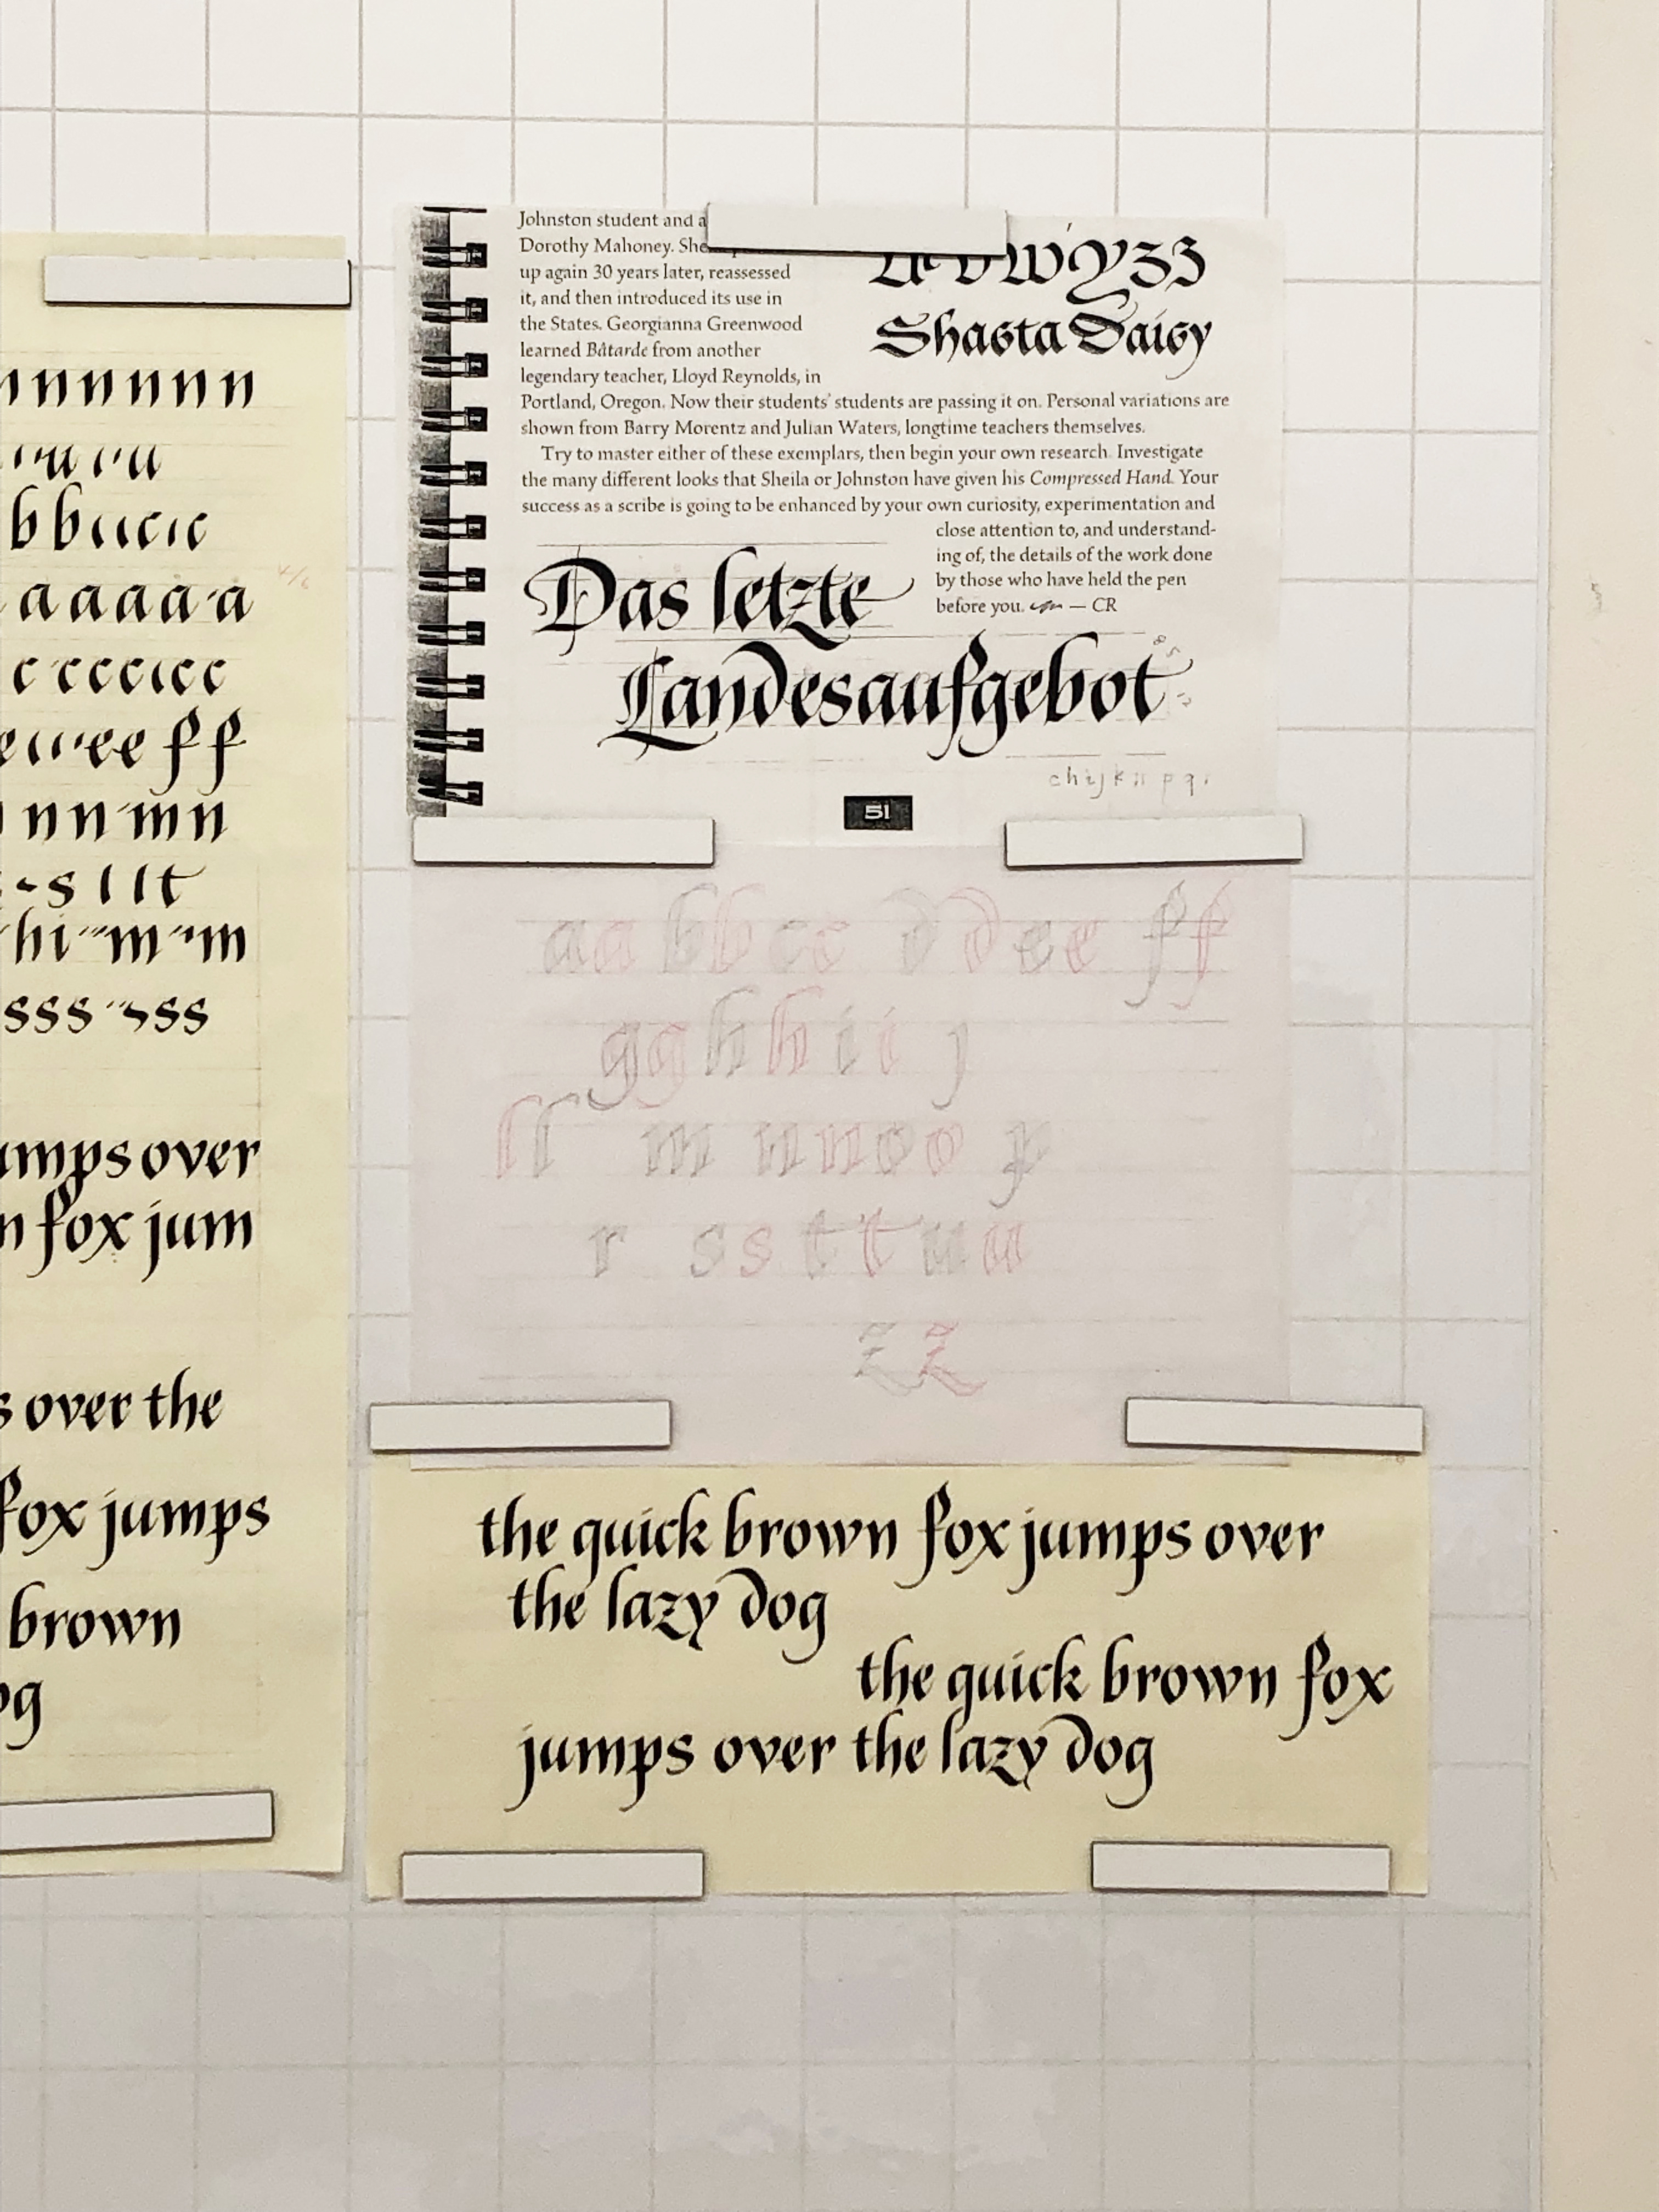 nnnnnn
bb
aaaaa
f f
nn mn
s l l t
hi m m
sss ss
umps over
n fox jum
s over the
fox jumps
brown
og
Johnston student and a
Dorothy Mahoney. She
up again 30 years later, reassessed
it, and then introduced its use in
the States. Georgianna Greenwood
learned Bâtarde from another
legendary teacher, Lloyd Reynolds, in
Portland, Oregon. Now their students' students are passing it on. Personal variations are
shown from Barry Morentz and Julian Waters, longtime teachers themselves.
Try to master either of these exemplars, then begin your own research. Investigate
the many different looks that Sheila or Johnston have given his Compressed Hand. Your
success as a scribe is going to be enhanced by your own curiosity, experimentation and
close attention to, and understand-
ing of, the details of the work done
by those who have held the pen
before you. — CR
w y z z
Shasta Daisy
Das letzte
Landesaufgebot
c h i j k n p q r
51
a a b b c c d d e e f f
g g h h i i j
l l m n n o o p
r s s t t u u
z z
the quick brown fox jumps over
the lazy dog
the quick brown fox
jumps over the lazy dog